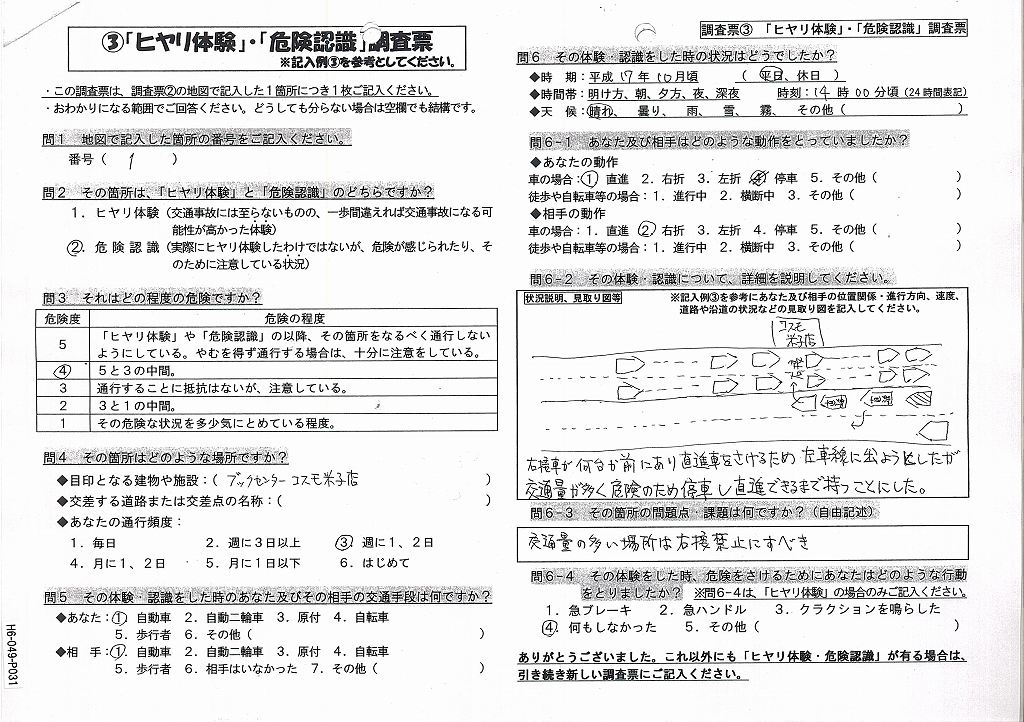 ③「ヒヤリ体験」・「危険認識」調査票
※記入例③を参考としてください。
・この調査票は、調査票②の地図で記入した1箇所につき1枚ご記入ください。
・おわかりになる範囲でご回答ください。どうしても分らない場合は空欄でも結構です。
問1 地図で記入した箇所の番号をご記入ください。
番号(1)
問2 その箇所は、「ヒヤリ体験」と「危険認識」のどちらですか?
1.ヒヤリ体験(交通事故には至らないものの、一歩間違えれば交通事故になる可
能性が高かった体験)
②.危険認識(実際にヒヤリ体験したわけではないが、危険が感じられたり、そ
のために注意している状況)
問3 それはどの程度の危険ですか?
危険度 危険の程度
5 「ヒヤリ体験」や「危険認識」の以降、その箇所をなるべく通行しない
ようにしている。やむを得ず通行する場合は、十分に注意をしている。
④ 5と3の中間。
3 通行することに抵抗はないが、注意している。
2 3と1の中間。
1 その危険な状況を多少気にとめている程度。
問4 その箇所はどのような場所ですか?
◆目印となる建物や施設:(ブックセンター コスモ米子店)
◆交差する道路または交差点の名称:( )
◆あなたの通行頻度:
1.毎日 2.週に3日以上 ③.週に1、2日
4.月に1、2日 5.月に1日以下 6.はじめて
問5 その体験・認識をした時のあなた及びその相手の交通手段は何ですか?
◆あなた:①.自動車 2.自動二輪車 3.原付 4.自転車
5.歩行者 6.その他( )
◆相 手:①.自動車 2.自動二輪車 3.原付 4.自転車
5.歩行者 6.相手はいなかった 7.その他( )
H6-049-P031
調査票③ 「ヒヤリ体験」・「危険認識」調査票
問6 その体験・認識をした時の状況はどうでしたか?
◆時 期:平成17年10月頃 (平日、休日)
◆時間帯:明け方、朝、夕方、夜、深夜 時刻:14時00分頃(24時間表記)
◆天 候:晴れ、曇り、雨、雪、霧、その他( )
問6-1 あなた及び相手はどのような動作をとっていましたか?
◆あなたの動作
車の場合:①直進 2.右折 3.左折 ④停車 5.その他( )
徒歩や自転車等の場合:1.進行中 2.横断中 3.その他( )
◆相手の動作
車の場合:1.直進 ②右折 3.左折 4.停車 5.その他( )
徒歩や自転車等の場合:1.進行中 2.横断中 3.その他( )
問6-2 その体験・認識について、詳細を説明してください。
状況説明、見取り図等
※記入例③を参考にあなた及び相手の位置関係・進行方向、速度、
道路や沿道の状況などの見取り図を記入してください。
コスモ
米子店
右接車が何台か前にあり直進車をさけるため左車線に出ようとしたが
交通量が多く危険のため停車し直進できるまで待つことにした。
問6-3 その箇所の問題点・課題は何ですか?(自由記述)
交通量の多い場所は右接禁止にすべき
問6-4 その体験をした時、危険をさけるためにあなたはどのような行動
をとりましたか? ※問6-4は、「ヒヤリ体験」の場合のみご記入ください。
1.急ブレーキ 2.急ハンドル 3.クラクションを鳴らした
④.何もしなかった 5.その他( )
ありがとうございました。これ以外にも「ヒヤリ体験・危険認識」が有る場合は、
引き続き新しい調査票にご記入ください。